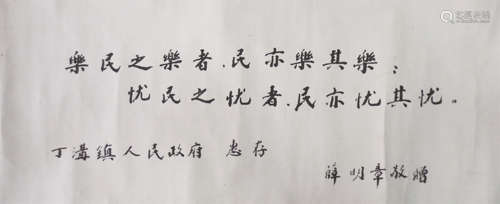 樂民之樂者.民亦樂其樂;
忧民之忧者.民亦忧其忧。
丁溝鎮人民政府 惠存
薛明章敬赠